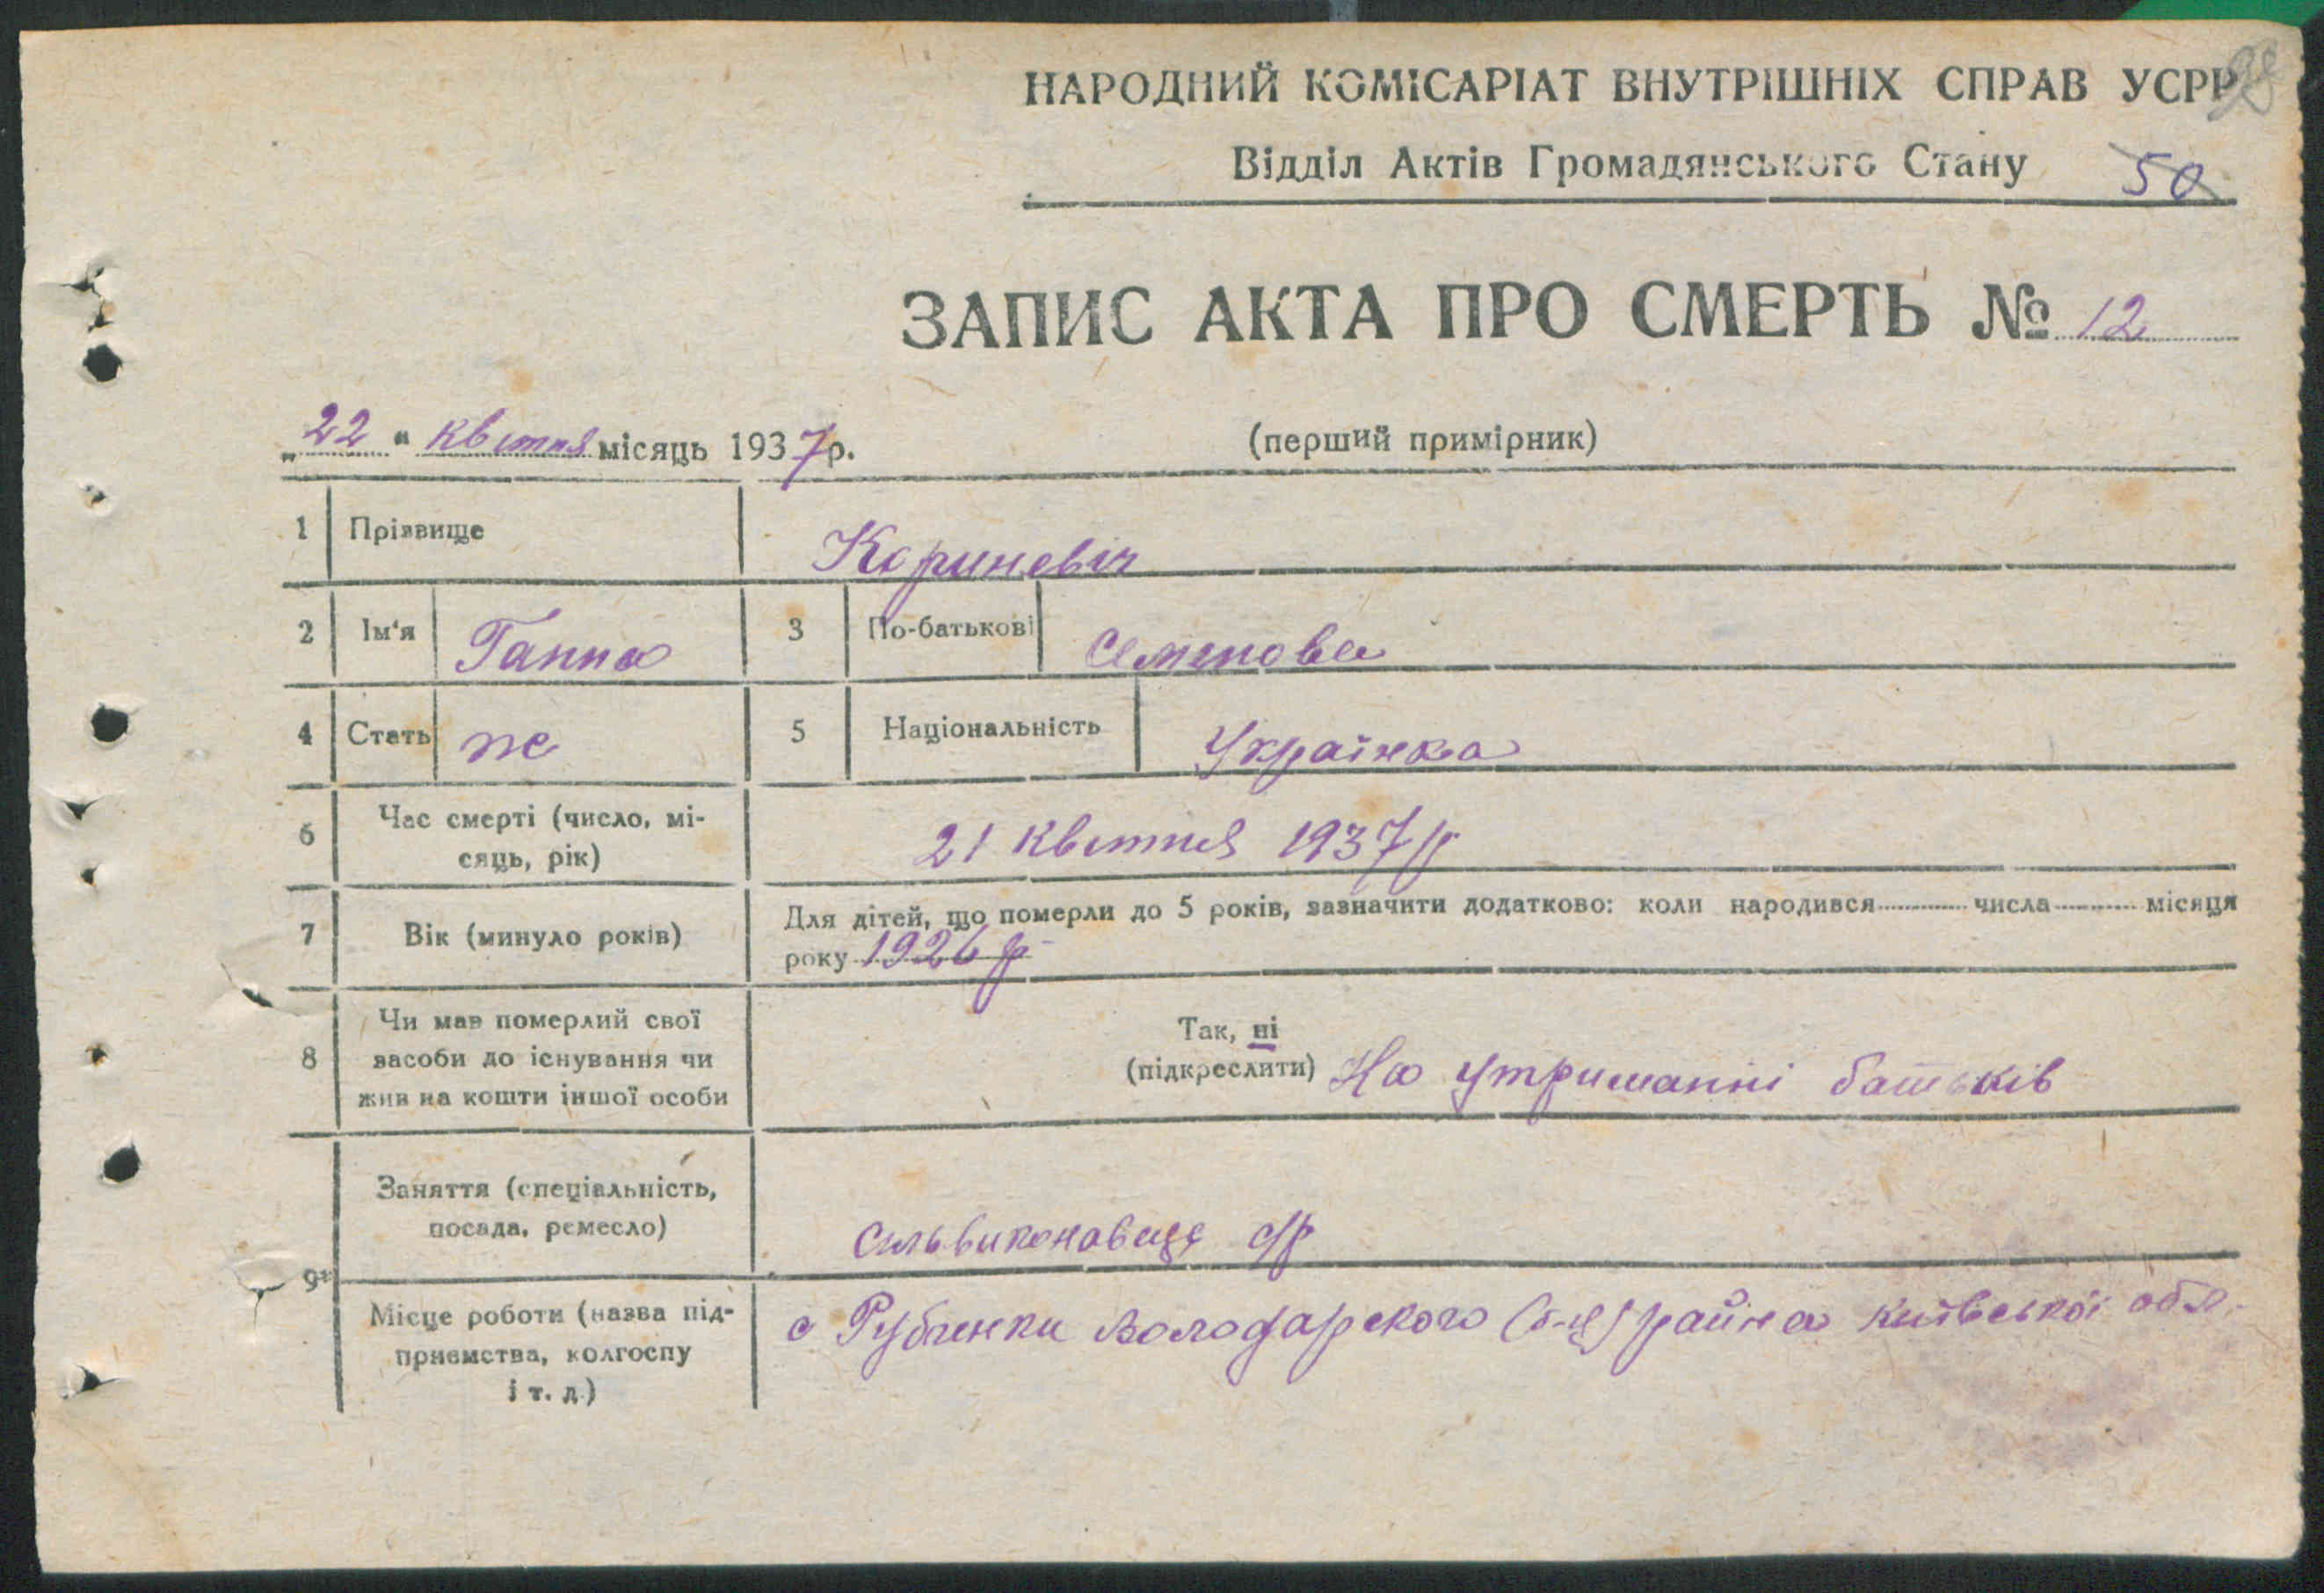 НАРОДНИЙ КОМІСАРІАТ ВНУТРІШНІХ СПРАВ УСРР
98
Відділ Актів Громадянського Стану 50
ЗАПИС АКТА ПРО СМЕРТЬ № 12
„22“ квітня місяць 1937р. (перший примірник)
1 Прізвище Кориневіч
2 Ім'я Ганна 3 По-батькові Семенова
4 Стать же 5 Національність Українка
6 Час смерті (число, мі-
сяць, рік) 21 квітня 1937 р
7 Вік (минуло років) Для дітей, що померли до 5 років, зазначити додатково: коли народився числа місяця
року 1926 р
8 Чи мав померлий свої
засоби до існування чи
жив на кошти іншої особи
Так, ні
(підкреслити) На утриманні батьків
9 Заняття (спеціальність,
посада, ремесло) сільвиконавець с/р
Місце роботи (назва під-
приємства, колгоспу
і т. д.)
с Рубченки Володарского (б-ц) району київської обл.